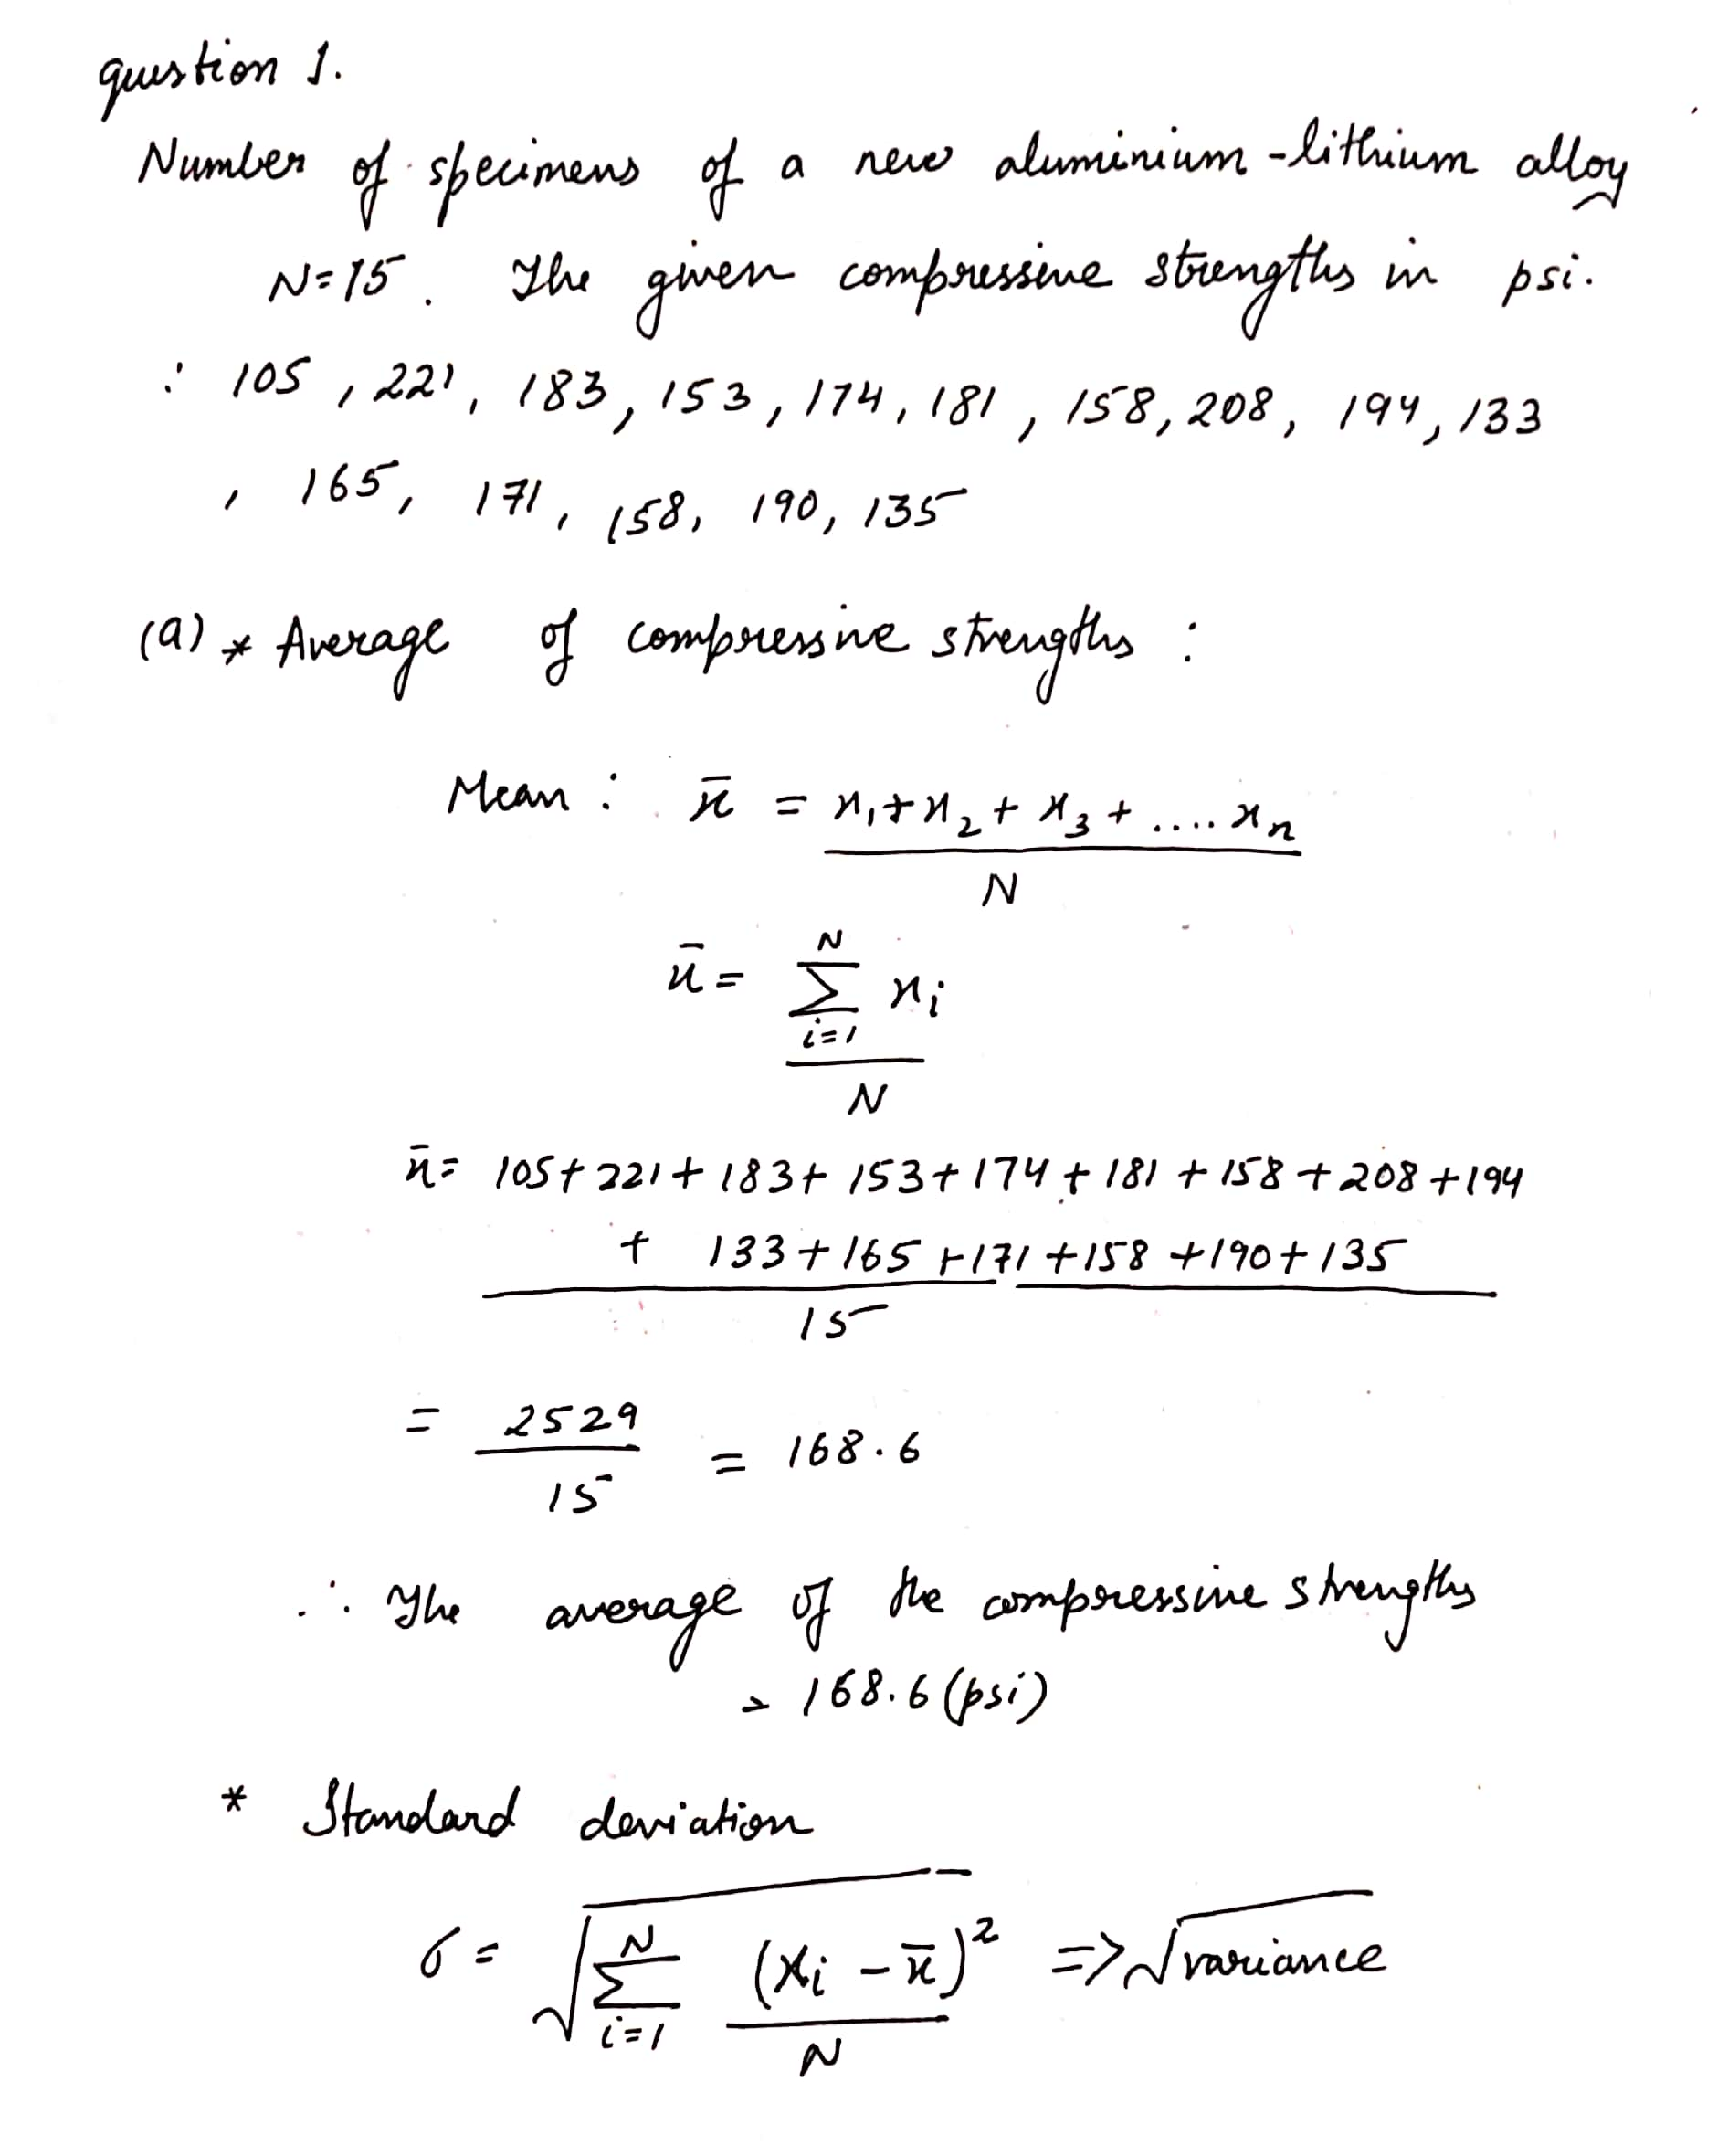 question 1.
Number of specimens of a new aluminium-lithium alloy
N=15. The given compressive strengths in psi.
: 105, 221, 183, 153, 174, 181, 158, 208, 194, 133
, 165, 171, 158, 190, 135
(a) * Average of compressive strengths :
Mean : x̄ = x₁+x₂+x₃+....xₙ
N
x̄ = N
∑ xᵢ
i=1
N
x̄ = 105+221+183+153+174+181+158+208+194
+ 133+165+171+158+190+135
15
= 2529
= 168.6
15
∴ The average of the compressive strengths
= 168.6 (psi)
* Standard deviation
σ = √ N ∑ i=1 (xᵢ - x̄)² => √variance
N